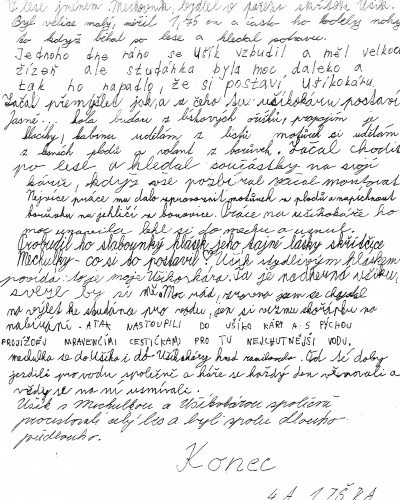 V lese jménem Mechovník, bydlel v pařezu skřítek Ušík.
Byl velice malý, měřil 1,75 cm a často ho bolely nohy
to když běhal po lese a hledal potravu.
Jednoho dne ráno se Ušík vzbudil a měl velkou
žízeň ale studánka byla moc daleko a
tak ho napadlo, že si postaví Ušíkokáru.
Začal přemýšlet jak, a s čeho tu ušíkokáru postaví
Jasně... kola budou z lískových oříšků, propojím je
klacíky, kabinu udělám z listí udělám
z plodů a volant z borůvek, Začal chodit
po lese a hledal součástky na svoji
káru, když vše pozbíral začal montovat
Nejvíce práce mu dalo motůrek z plodů a napíchnout
borůvku na jehličí z borovice. Práce na ušíkokáře ho
moc unavila lehl si do mechu a usnul.
Probudil ho slabounký hlásek jeho tajné lásky skřítčice
Mechulky - co si to postavil? Ušík stydlivým hláskem
povídá: to je moje Ušíkokára. Ta je nádherná ušíku,
svezl by si mě. Moc rád, zrovna jsem se chystal
na výlet ke studánce pro vodu, jen si vezmu skořápku na
nabírání - A TAK NASTOUPILI DO UŠÍKO KÁRA A S PÝCHOU
PROJÍŽDĚJÍ MRAVENČÍMI CESTIČKAMI PRO TU NEJCHUTNĚJŠÍ VODU,
mechulka se do Ušíka i do Ušíkokáry hned zamilovala. Od té doby
jezdili pro vodu společně a káře se každý den věnovali a
vždy se na ní usmívali.
Ušík s Mechulkou a Ušíkokárou společně
procestovali celý les a byli spolu dlouho
předlouho.
Konec
4.A 1 ZŠ RA